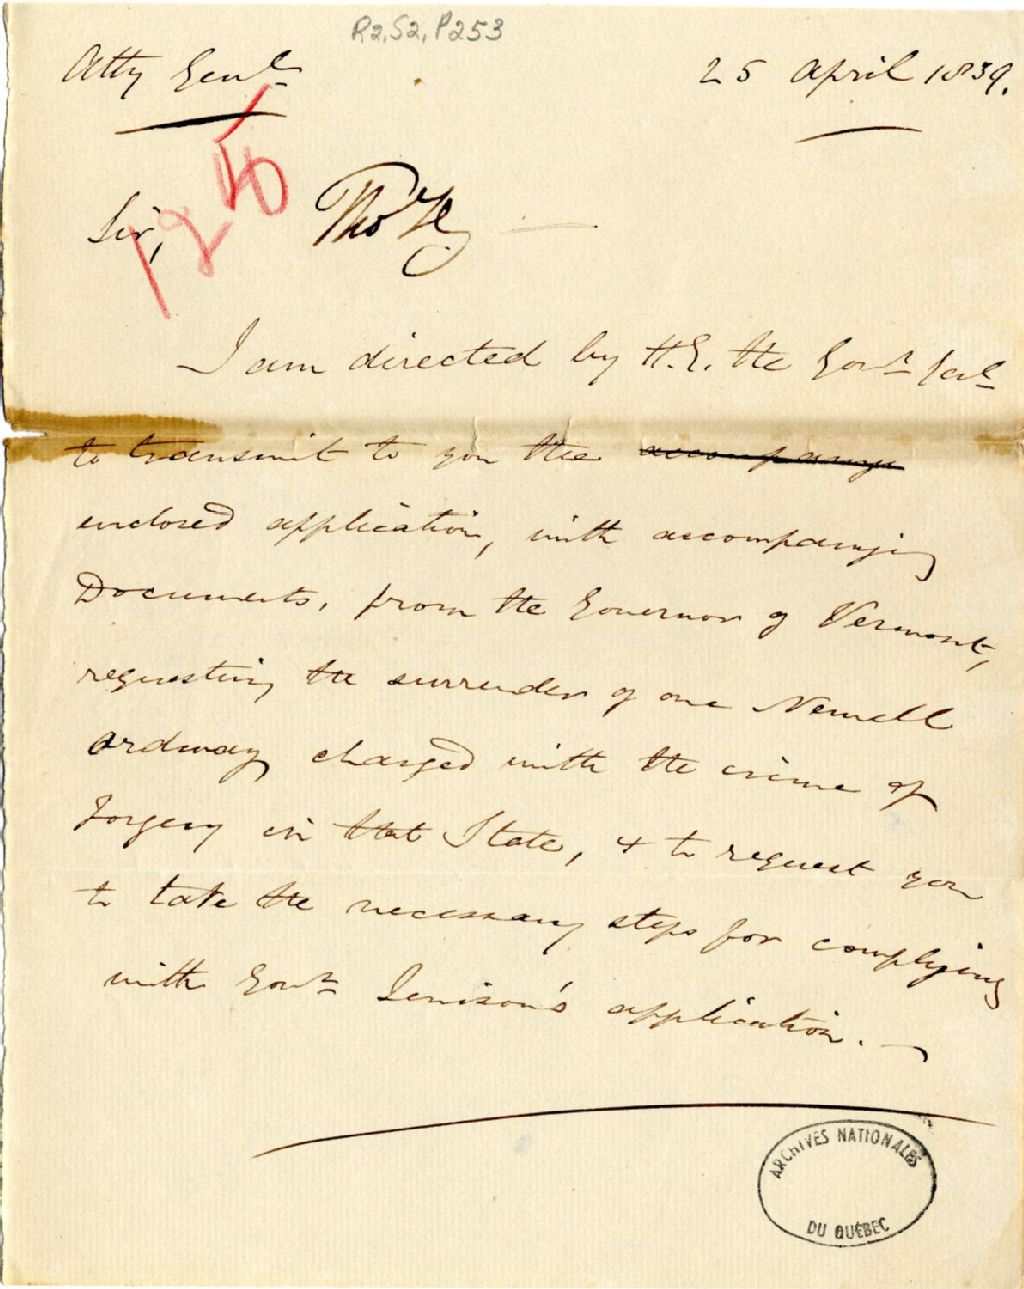 R2,S2,P253
Atty Genl
25 April 1839.
Sir,
I am directed by H.E. the Govr Genl
to transmit to you the accompanyi
enclosed application, with accompanying
Documents, from the Governor of Vermont,
requesting the surrender of one Newell
Ordway charged with the crime of
Forgery in that State, & to request you
to take the necessary steps for complying
with Govr Jenison's application.
ARCHIVES NATIONALES
DU QUÉBEC